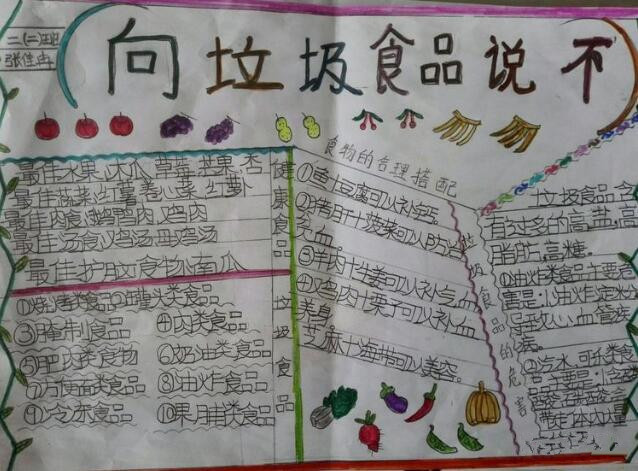 二(二)班
张佳冉
向垃圾食品说不
最佳水果:木瓜 草莓 苹果 杏
最佳蔬菜:红薯 卷心菜 红萝卜
最佳肉食:鹅鸭肉 鸡肉
最佳汤食:鸡汤 母鸡汤
最佳护脑食物:南瓜
健康食品
①烧烤类食品②罐头类食品
③腌制食品 ④肉类食品
⑤肥肉类食物 ⑥奶油类食品
⑦方便面类食品 ⑧油炸食品
⑨冷冻食品 ⑩果脯类食品
垃圾食品
食物的合理搭配
①鱼+豆腐可以补钙
②猪肝+菠菜可以防治
贫血。
③羊肉+生姜可以补气
④鸡肉+栗子可以补血
美身
芝麻+海带可以美容。
垃圾食品的危害
垃圾食品含
有过多的高盐,高
脂肪,高糖。
①油炸类食品主要危
害是:1油炸淀粉
导致心血管疾
病
②汽水、可乐类食
品主要是:1含